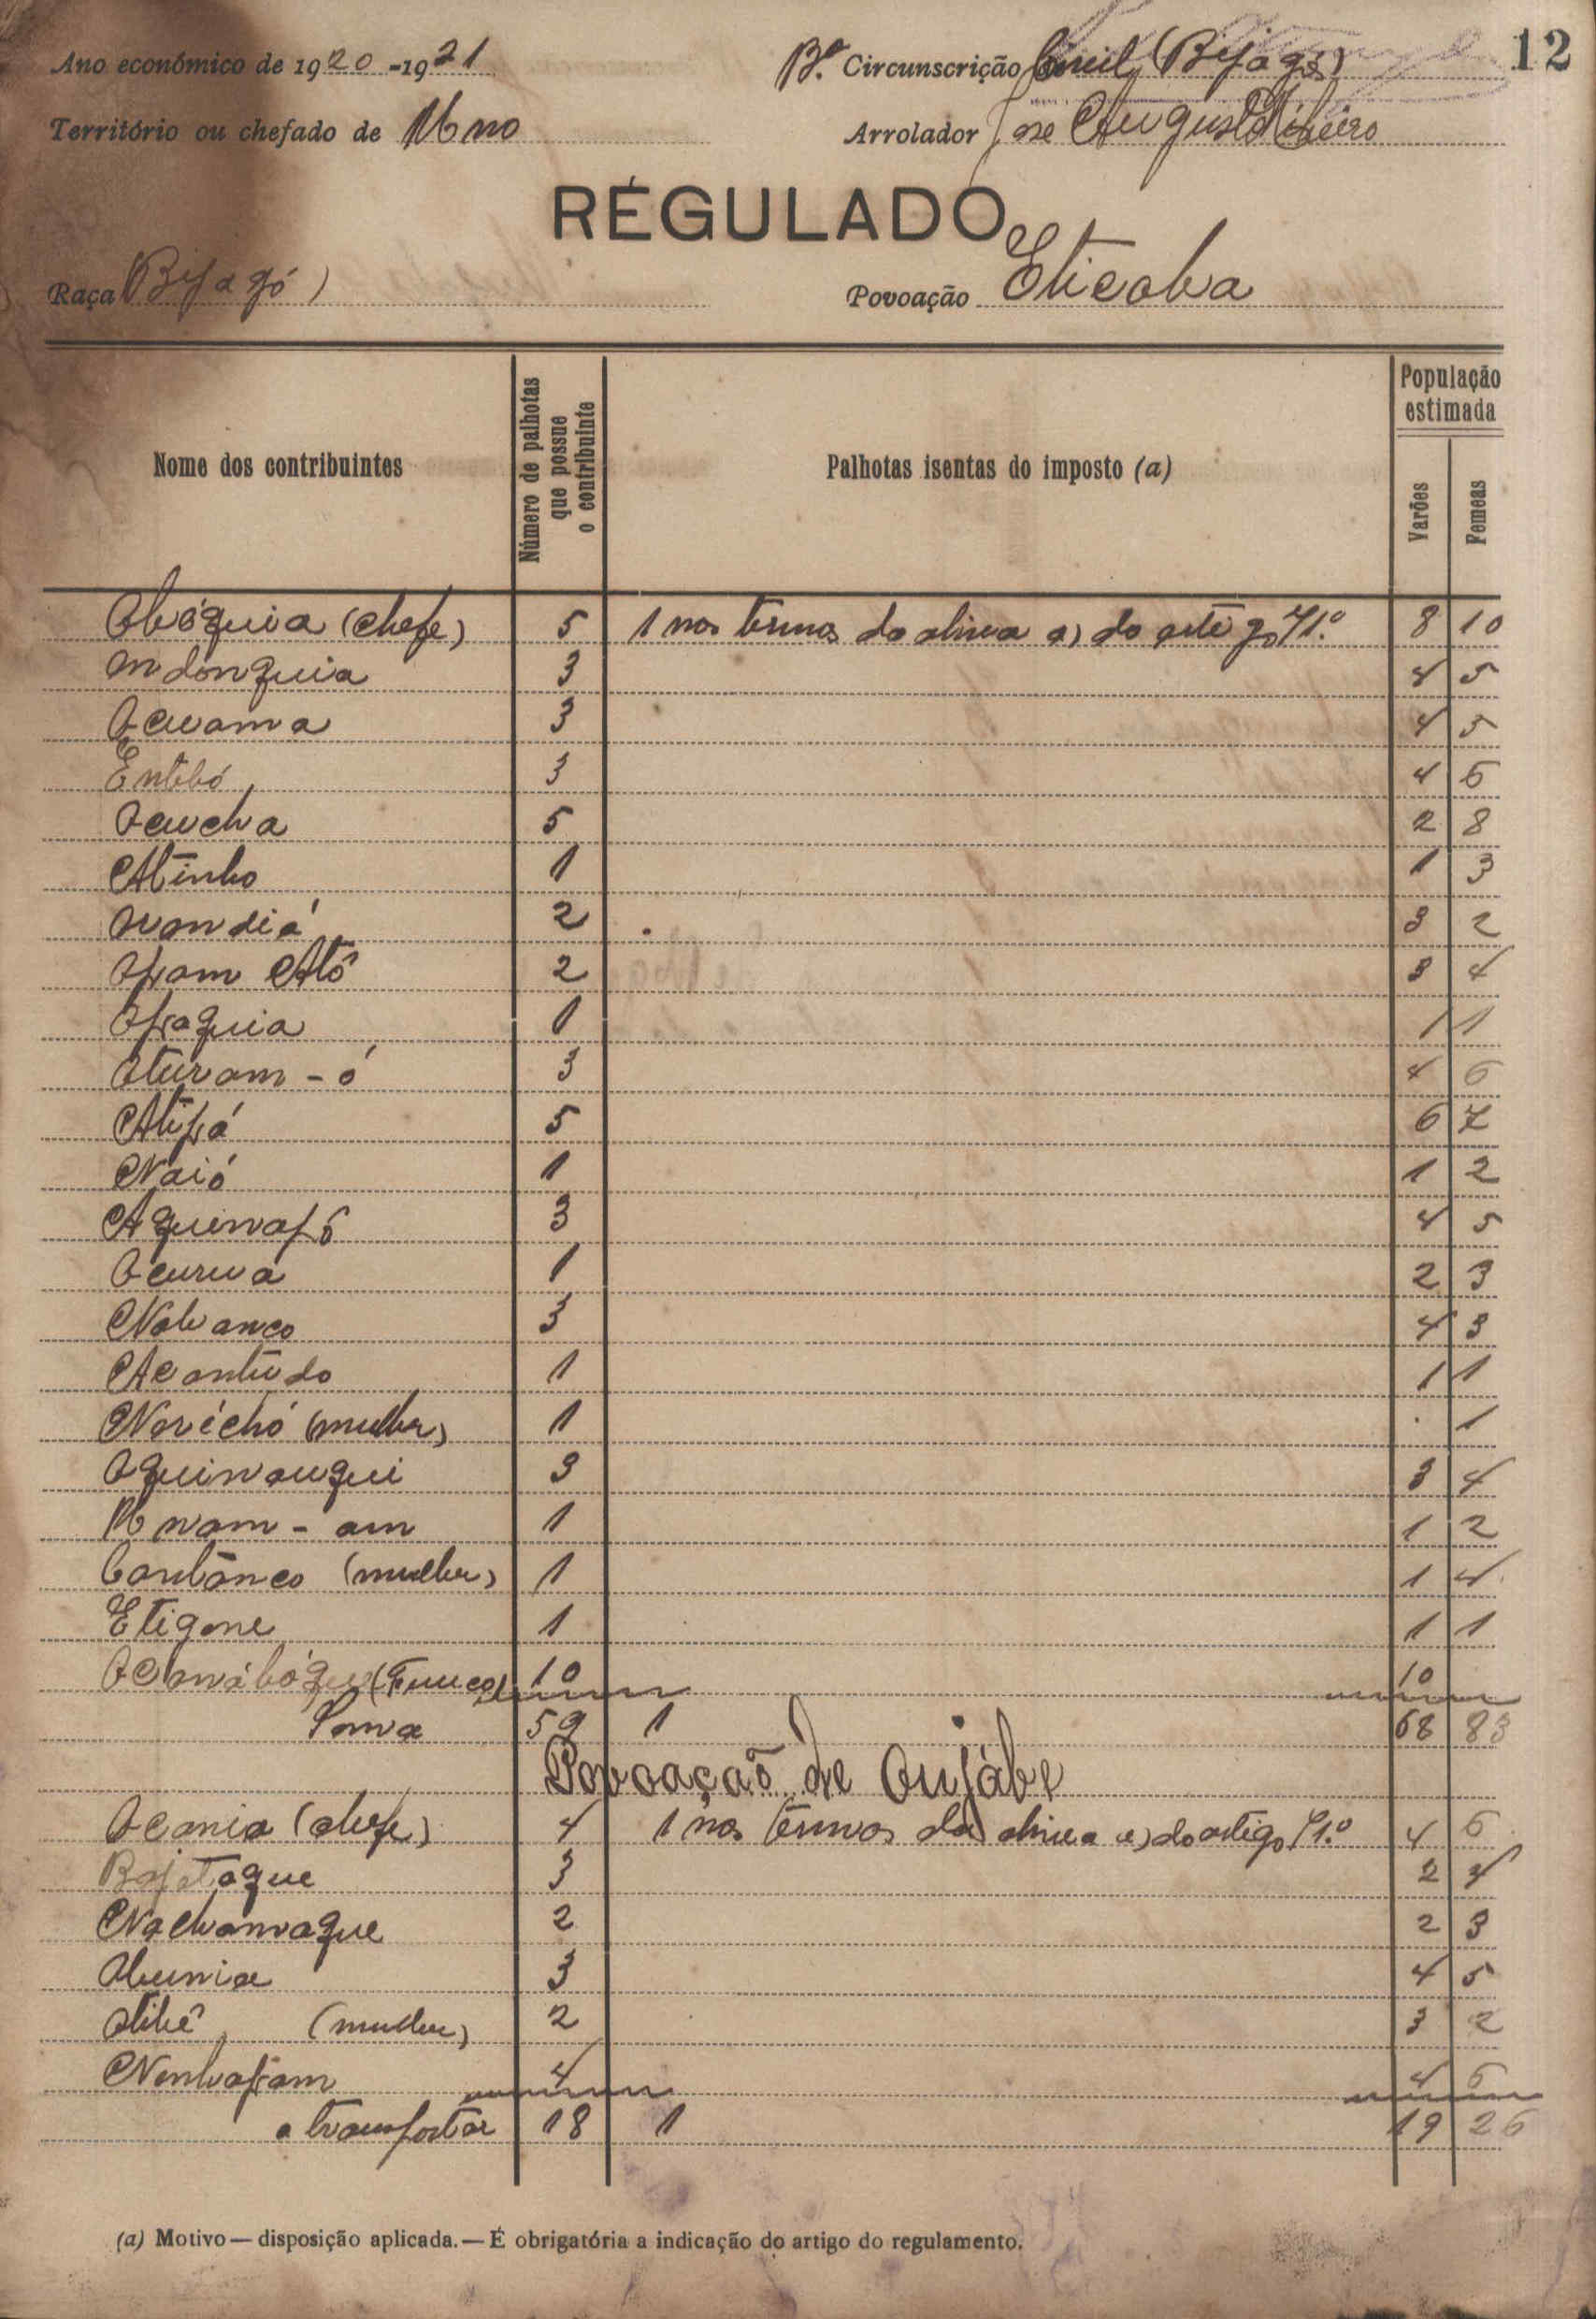 12
Ano económico de 1920-1921
Bª Circunscrição Civil (Bijagós)
Território ou chefado de Uno
Arrolador José Augusto Ribeiro
RÉGULADO
Raça (Bijagó)
Povoação Eticoba
Nome dos contribuintes | Número de palhotas que possue o contribuinte | Palhotas isentas do imposto (a) | População estimada
Varões | Femeas
Obóquia (chefe) 5 1 nos termos da alinea a) do artigo 41.º 8 10
Indonquia 3 4 5
Ocuama 3 4 5
3 4 6
Ocucha 5 2 8
Atinho 1 1 3
2 3 2
Opam Atô 2 3 4
Opaquia 1 1 1
Oturam-ó 3 4 6
Atipá 5 6 7
Naió 1 1 2
Aquinapó 3 4 5
1 2 3
Nabanco 3 4 3
Acantudo 1 1 1
Norichó (mulher) 1 . 1
Oquinauqui 3 3 4
1 1 2
(mulher) 1 1 4
Etigone 1 1 1
10 10
Soma 59 1 68 83
Povoação de Anjábe
Ocania (chefe) 4 1 nos termos da alinea a) do artigo 41.º 4 6
Bajetaque 3 2 4
Nachamaque 2 2 3
Abunia 3 4 5
Atibê (mulher) 2 3 2
4 4 6
a transportar 18 1 19 26
(a) Motivo — disposição aplicada. — É obrigatória a indicação do artigo do regulamento.